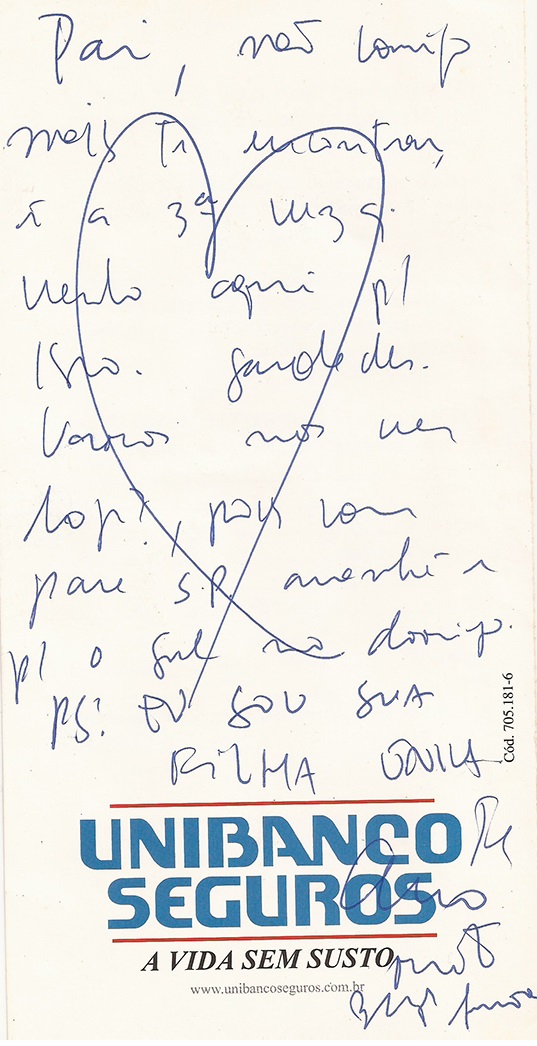 Pai, não consigo
mais te encontrar,
é a 3ª vez q.
venho aqui p/
isso. saudades.
Vamos nos ver
hoje?, pois vou
para S.P. amanhã e
p/ o sul no domingo.
PS: EU SOU SUA
FILHA ÚNICA
Cód. 705.181-6
UNIBANCO
SEGUROS
Te
Amo
muito
A VIDA SEM SUSTO
www.unibancoseguros.com.br